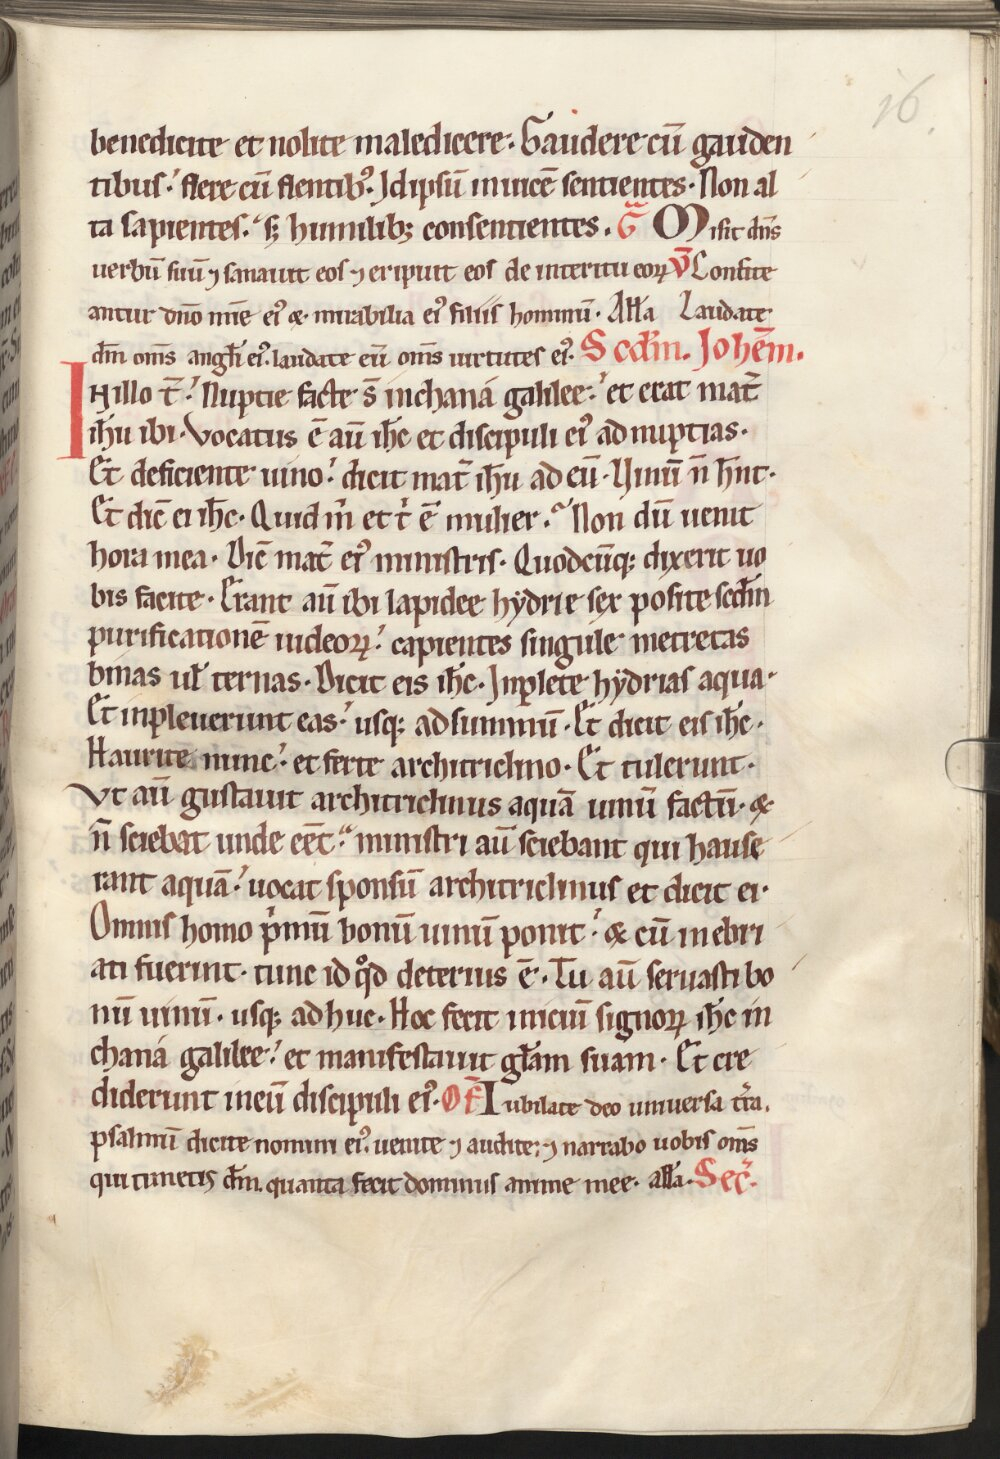 16.
benedicite et nolite maledicere. Gaudere cū gauden
tibus. flere cū flentib9. Idipsū inuicē sentientes. Non al
ta sapientes. sꝫ humilibꝫ consentientes. G̅ Misit dn̄s
uerbū suū ⁊ sanauit eos ⁊ eripuit eos de interitu eoꝝ V̅ Confite
antur dn̄o mīe ei9 & mirabilia ei9 filiis hominū. All̅a Laudate
dm̄ om̄s angl̅i ei9. laudate eū om̄s uirtutes ei9. Scd̅m. Joh̅em.
In illo t̅. Nuptie facte s̄ inchana galilee. et erat mat̅
ih̅u ibi. Vocatus ē aū ih̅c et discipuli ei9 ad nuptias.
Et deficiente uino. dicit mat̅ ih̅u ad eū. Uinū n̄ h̅nt.
Et dic̅ ei ih̅c. Quid m̅ et t̅ ē mulier. Non dū uenit
hora mea. Dic̅ mat̅ ei9 ministris. Quodcūqꝫ dixerit uo
bis facite. Erant aū ibi lapidee hydrie sex posite scd̅m
purificationē iudeoꝝ. capientes singule metretas
binas ul̅ ternas. Dicit eis ih̅c. Inplete hydrias aqua.
Et inpleuerunt eas. usqꝫ ad summū. Et dicit eis ih̅c.
Haurite nunc. et ferte architriclino. Et tulerunt.
Vt aū gustauit architriclinus aquā uinū factū. &
n̄ sciebat unde eēt. ministri aū sciebant qui hause
rant aquā. uocat sponsū architriclinus et dicit ei.
Omnis homo pͥmū bonū uinū ponit. & cū inebri
ati fuerint. tunc id qͦd deterius ē. Tu aū seruasti bo
nū uinū. usqꝫ adhuc. Hoc fecit iniciū signoꝝ ih̅c in
chana galilee. et manifestauit gl̅am suam. Et cre
diderunt in eū discipuli ei9. Of̅ Iubilate deo uniuersa t̅ra.
psalmū dicite nomini ei9. uenite ⁊ audite. ⁊ narrabo uobis om̄s
qui timetis dm̄. quanta fecit dominus anime mee. all̅a. Sec̅.